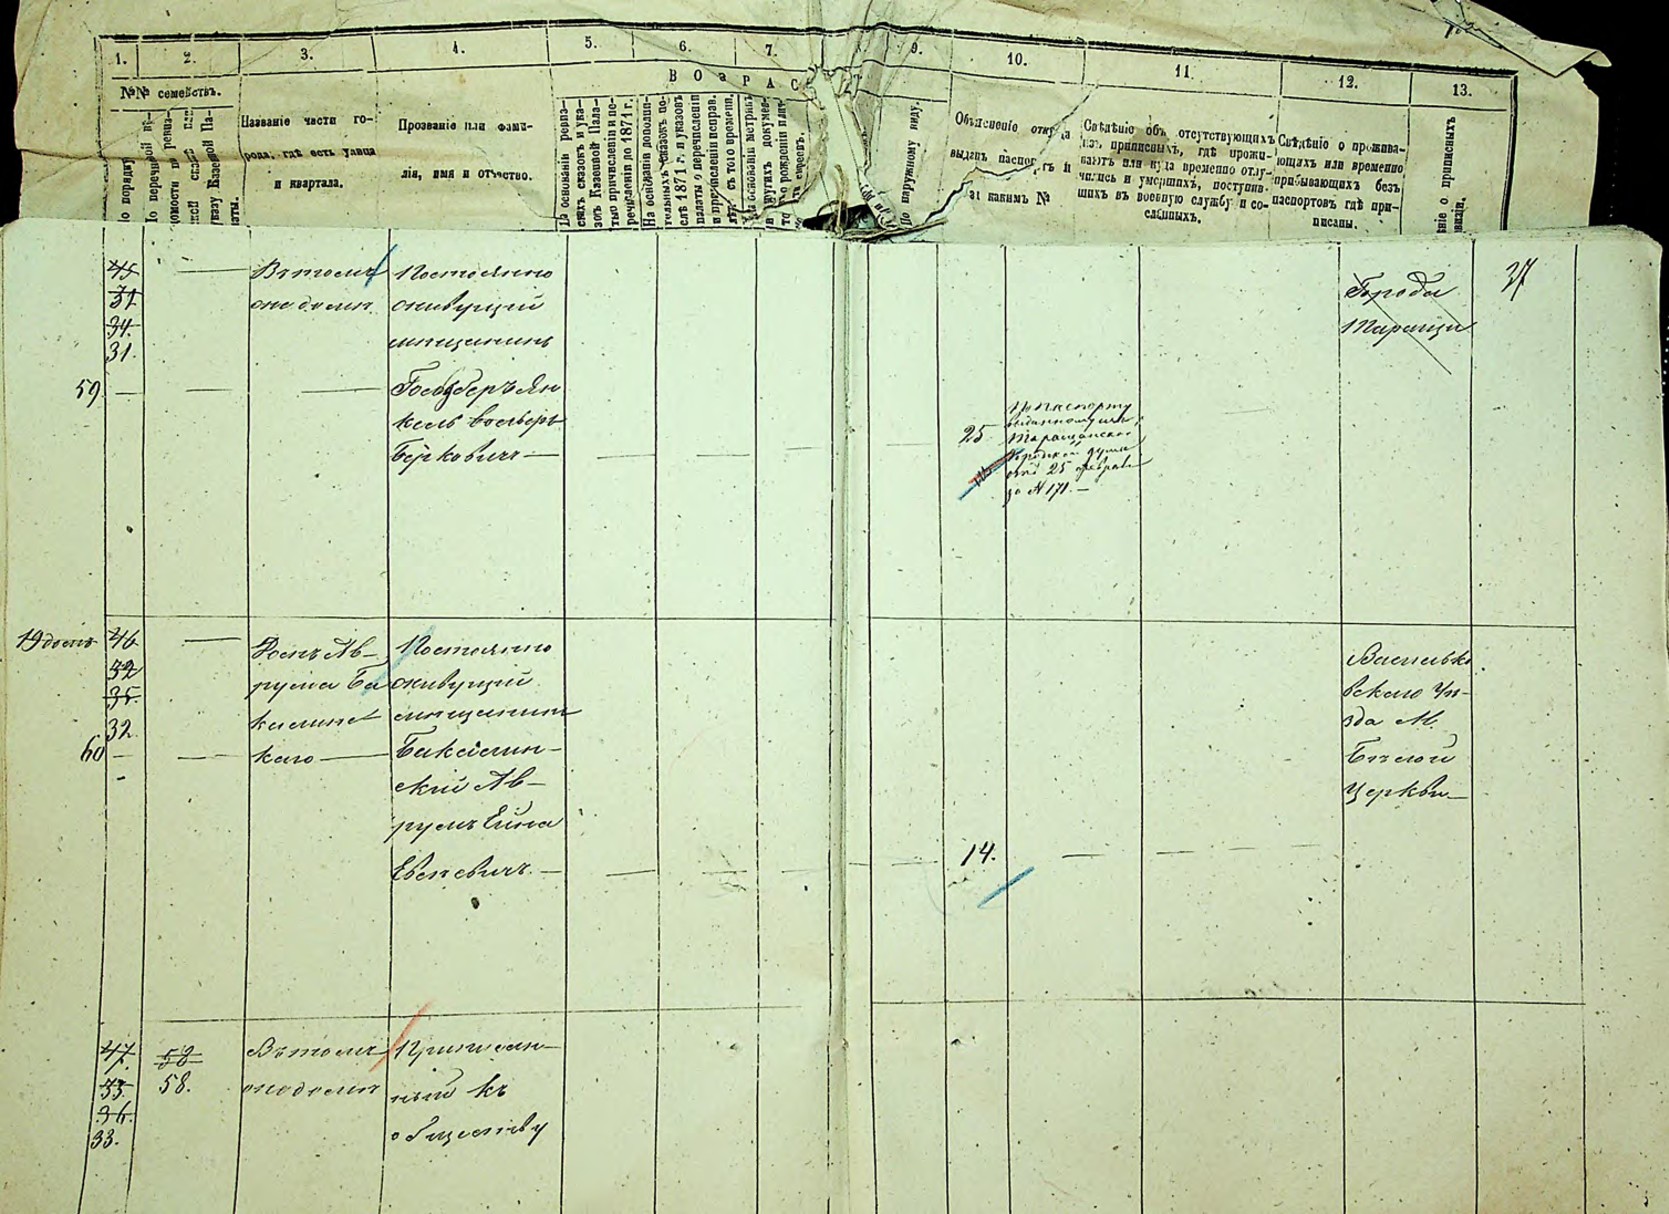 1. 2. 3. 4. 5. 6. 7. 9. 10. 11. 12. 13.
№№ семействъ.
В О З Р А С Т
По порядку
Названіе части го-
рода, гдѣ есть улица
и квартала.
Прозваніе или фами-
лія, имя и отчество.
На основаніи ревиз-
скихъ сказокъ и ука-
зовъ Казенной Пала-
ты о причисленіи и пе-
речисленіи до 1871 г.
На основаніи дополни-
тельныхъ сказокъ по-
слѣ 1871 г. и указовъ
палаты о перечисленіи
и причисленіи исправ.
съ того времени.
По наружному виду.
Объясненіе откуда
выданъ паспортъ и
за какимъ №
Свѣдѣніе объ отсутствующихъ
изъ приписныхъ, гдѣ прожи-
ваютъ или куда временно отлу-
чились и умершихъ, поступив-
шихъ въ военную службу и со-
сланныхъ.
Свѣдѣніе о прожива-
ющихъ или временно
прибывающихъ безъ
паспортовъ гдѣ при-
писаны.
о приписныхъ
37
45
51
34
31.
Въ томъ
же домѣ
Постоянно
живущій
мѣщанинъ
Города
Таращи
59
кель Вольфъ
Берковичъ
25
По паспорту
выданному изъ
Таращанской
Городской думы
отъ 25 февраля
за № 171.
19 домъ
46
52
35
32
Домъ Ав-
рума Ба
калинс
каго
Постоянно
живущій
мѣщанинъ
Василько
вскаго Уѣ-
зда М.
Бѣлой
Церкви
60
Бакалин-
скій Ав-
румъ
14.
47
53
36
33.
58
58.
Въ томъ
же домѣ
Приписан-
ный къ
обществу